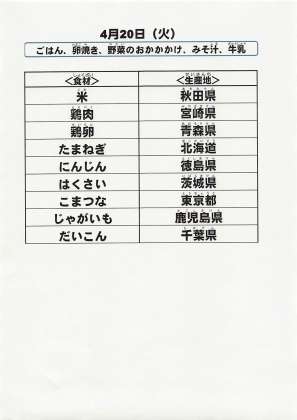 4月20日（火）
ごはん、卵焼き、野菜のおかかかけ、みそ汁、牛乳
＜食材＞ ＜生産地＞
米 秋田県
鶏肉 宮崎県
鶏卵 青森県
たまねぎ 北海道
にんじん 徳島県
はくさい 茨城県
こまつな 東京都
じゃがいも 鹿児島県
だいこん 千葉県